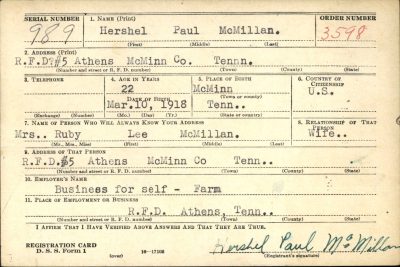 SERIAL NUMBER 1. NAME (Print) ORDER NUMBER
989 Hershel Paul McMillan. 3598
(First) (Middle) (Last)
2. ADDRESS (Print)
R.F.D.#5 Athens McMinn Co. Tennn.
(Number and street or R. F. D. number) (Town) (County) (State)
3. TELEPHONE 4. AGE IN YEARS 5. PLACE OF BIRTH 6. COUNTRY OF CITIZENSHIP
22 McMinn U.S.
DATE OF BIRTH (Town or county)
Mar.10, 1918 Tenn..
(Exchange) (Number) (Mo.) (Day) (Yr.) (State or country)
7. NAME OF PERSON WHO WILL ALWAYS KNOW YOUR ADDRESS 8. RELATIONSHIP OF THAT PERSON
Mrs.. Ruby Lee McMillan. Wife..
(Mr., Mrs., Miss) (First) (Middle) (Last)
9. ADDRESS OF THAT PERSON
R.F.D.#5 Athens McMinn Co Tenn..
(Number and street or R. F. D. number) (Town) (County) (State)
10. EMPLOYER'S NAME
Business for self - Farm
11. PLACE OF EMPLOYMENT OR BUSINESS
R.F.D. Athens, Tenn..
(Number and street or R. F. D. number) (Town) (County) (State)
I AFFIRM THAT I HAVE VERIFIED ABOVE ANSWERS AND THAT THEY ARE TRUE.
REGISTRATION CARD
D. S. S. Form 1 (over) 16—17105 Hershel Paul McMillan
(Registrant's signature)